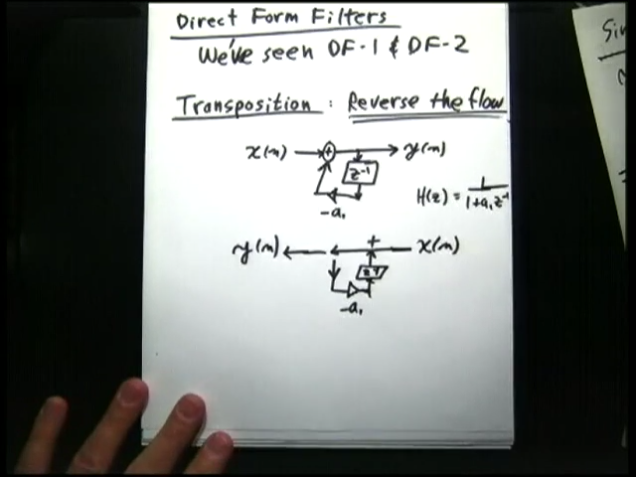 Direct Form Filters
We've seen DF-1 & DF-2
Transposition : Reverse the flow
x(n) + y(n)
z⁻¹
-a₁
H(z) = 1/(1+a₁z⁻¹)
y(n) + x(n)
z⁻¹
-a₁
Sin